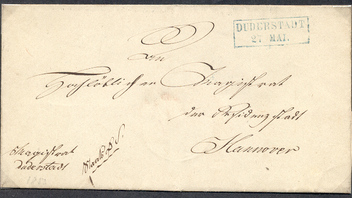 DUDERSTADT
27 MAI.
An
Hochlöblichen Magistrat
der Residenzstadt
Hannover
Magistrat
Duderstadt